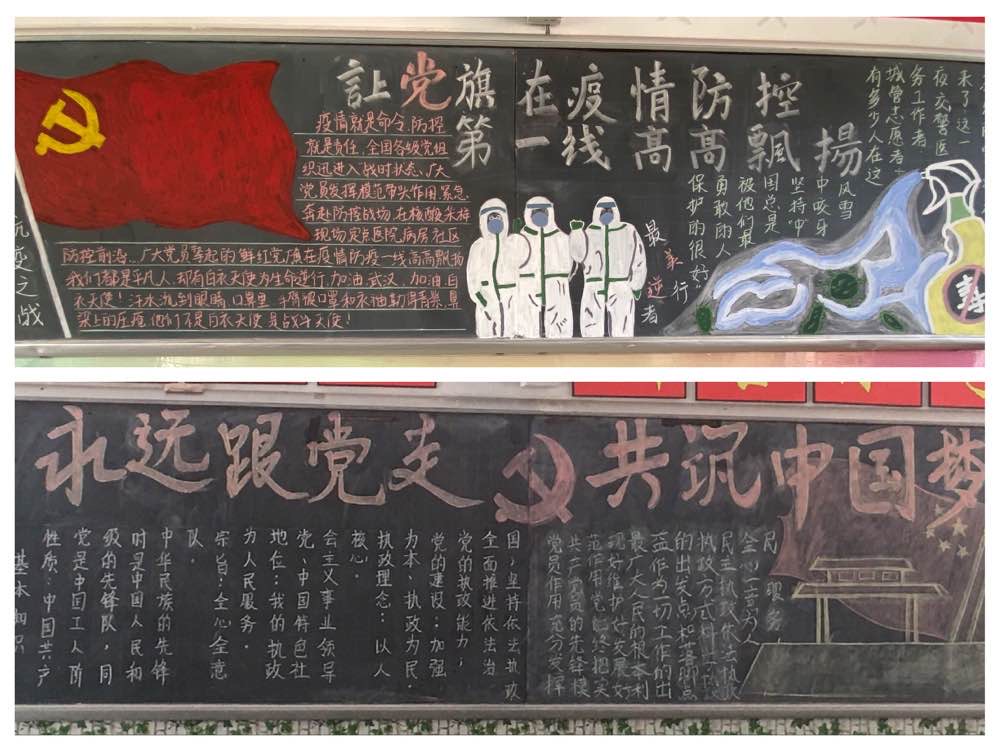 让党旗在疫情防控
第一线高高飄揚
疫情就是命令.防控
就是责任.全国各级党组
织迅进入战时状态、广大
党员发挥模范带头作用紧急
奔赴防控战场.在核酸采样
现场定点医院.病房.社区
防控前沿...广大党员擎起的鲜红党旗在疫情防疫一线高高飘扬
我们都是平凡人.却有白衣天使为生命逆行.加油武汉.加油白
衣天使！汗水流到眼睛.口鼻里.口罩和衣袖勒得青紫.鼻
梁上的压疮.他们不是白衣天使是战斗天使！
之战
最美逆行者
未了这一
夜交警医
务工作者
城管志愿者
有多少人在这
风雪
中咬牙
坚持"中
国总是
被他们最
勇敢的人
保护的很好"
永远跟党走
共筑中国梦
基本知识
性质：中国共产
党是中国工人阶
级的先锋队，同
时是中国人民和
中华民族的先锋
队。
宗旨：全心全意
为人民服务。
地位：我的执政
党、中国特色社
会主义事业领导
核心。
执政理念：以人
为本、执政为民。
党的建设：加强
党的执政能力；
全面推进依法治
国，坚持依法执政
党员作用充分发挥
共产党员的先锋模
范作用党始终把实
现好维护好发展好
最广大人民的根本利
益作为一切工作的出
的出发点和落脚点
执政方式科学执政
民主执政依法执政
全心一意为人
民